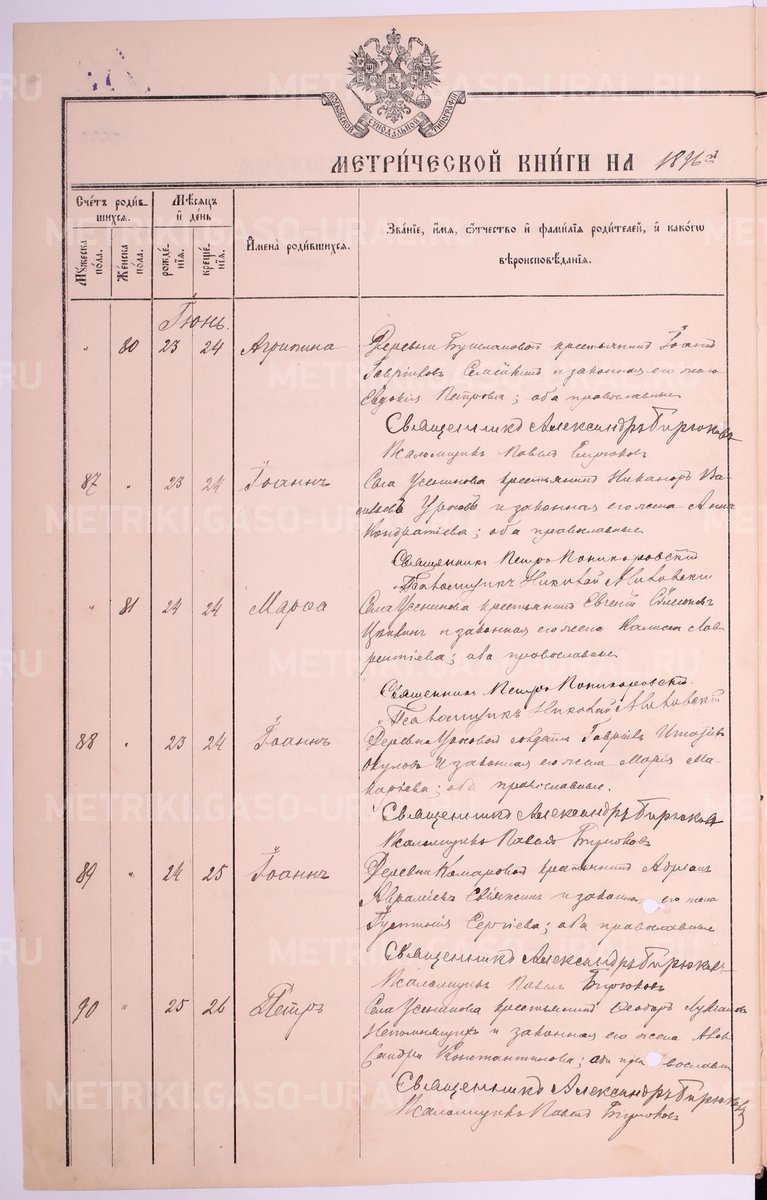 МОСКОВСКОЙ СѴНОДАЛЬНОЙ ТИПОГРАФІИ
МЕТРИ́ЧЕСКОЙ КНИ́ГИ НА 1896 г.
Сче́тъ роди́вшихся.
Мѣсяцъ и҆ де́нь
И҆мена̀ роди́вшихся.
Зва́нїе, и҆́мя, ѻ҆́тчество и҆ фами́лїя роди́телей, и҆ како́гѡ
вѣроисповѣ́данїя.
Мꙋ́жеска по́ла.
Же́нска по́ла.
рожде́нїя.
креще́нїя.
Іюнь.
" 80 23 24 Агрипина Деревни крестьянинъ Іоаннъ
и законная его жена
Евдокія Петрова; оба православные
Священникъ Александръ Бирюковъ
Псаломщикъ Павелъ Бирюковъ
87 " 23 24 Іоаннъ Села Усенинова крестьянинъ Никаноръ Ва-
сильевъ и законная его жена Анна
Кондратіева; оба православные
Священникъ Петръ Пономаревскій
Псаломщикъ Николай
" 81 24 24 Марѳа Села Усенинова крестьянинъ Евгеній Симеоновъ
и законная его жена Лав-
рентіева; оба православные
Священникъ Петръ Пономаревскій
Псаломщикъ Николай
88 " 23 24 Іоаннъ Деревни солдатъ Гавріилъ Игнатіевъ
Окуловъ и законная его жена Марія Ма-
каріева; оба православные.
Священникъ Александръ Бирюковъ
Псаломщикъ Павелъ Бирюковъ
89 " 24 25 Іоаннъ Деревни Комаровой крестьянинъ Адріанъ
Авраміевъ и законная его жена
Іустинія Сергіева; оба православные
Священникъ Александръ Бирюковъ
Псаломщикъ Павелъ Бирюковъ
90 " 25 26 Петръ Села Усенинова крестьянинъ Ѳеодоръ
Непомнящихъ и законная его жена Алек-
сандра Константинова; оба православные
Священникъ Александръ Бирюковъ
Псаломщикъ Павелъ Бирюковъ
METRIKI.GASO-URAL.RU